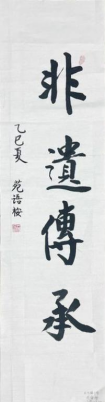 非遺傳承
乙巳夏
苑語桉